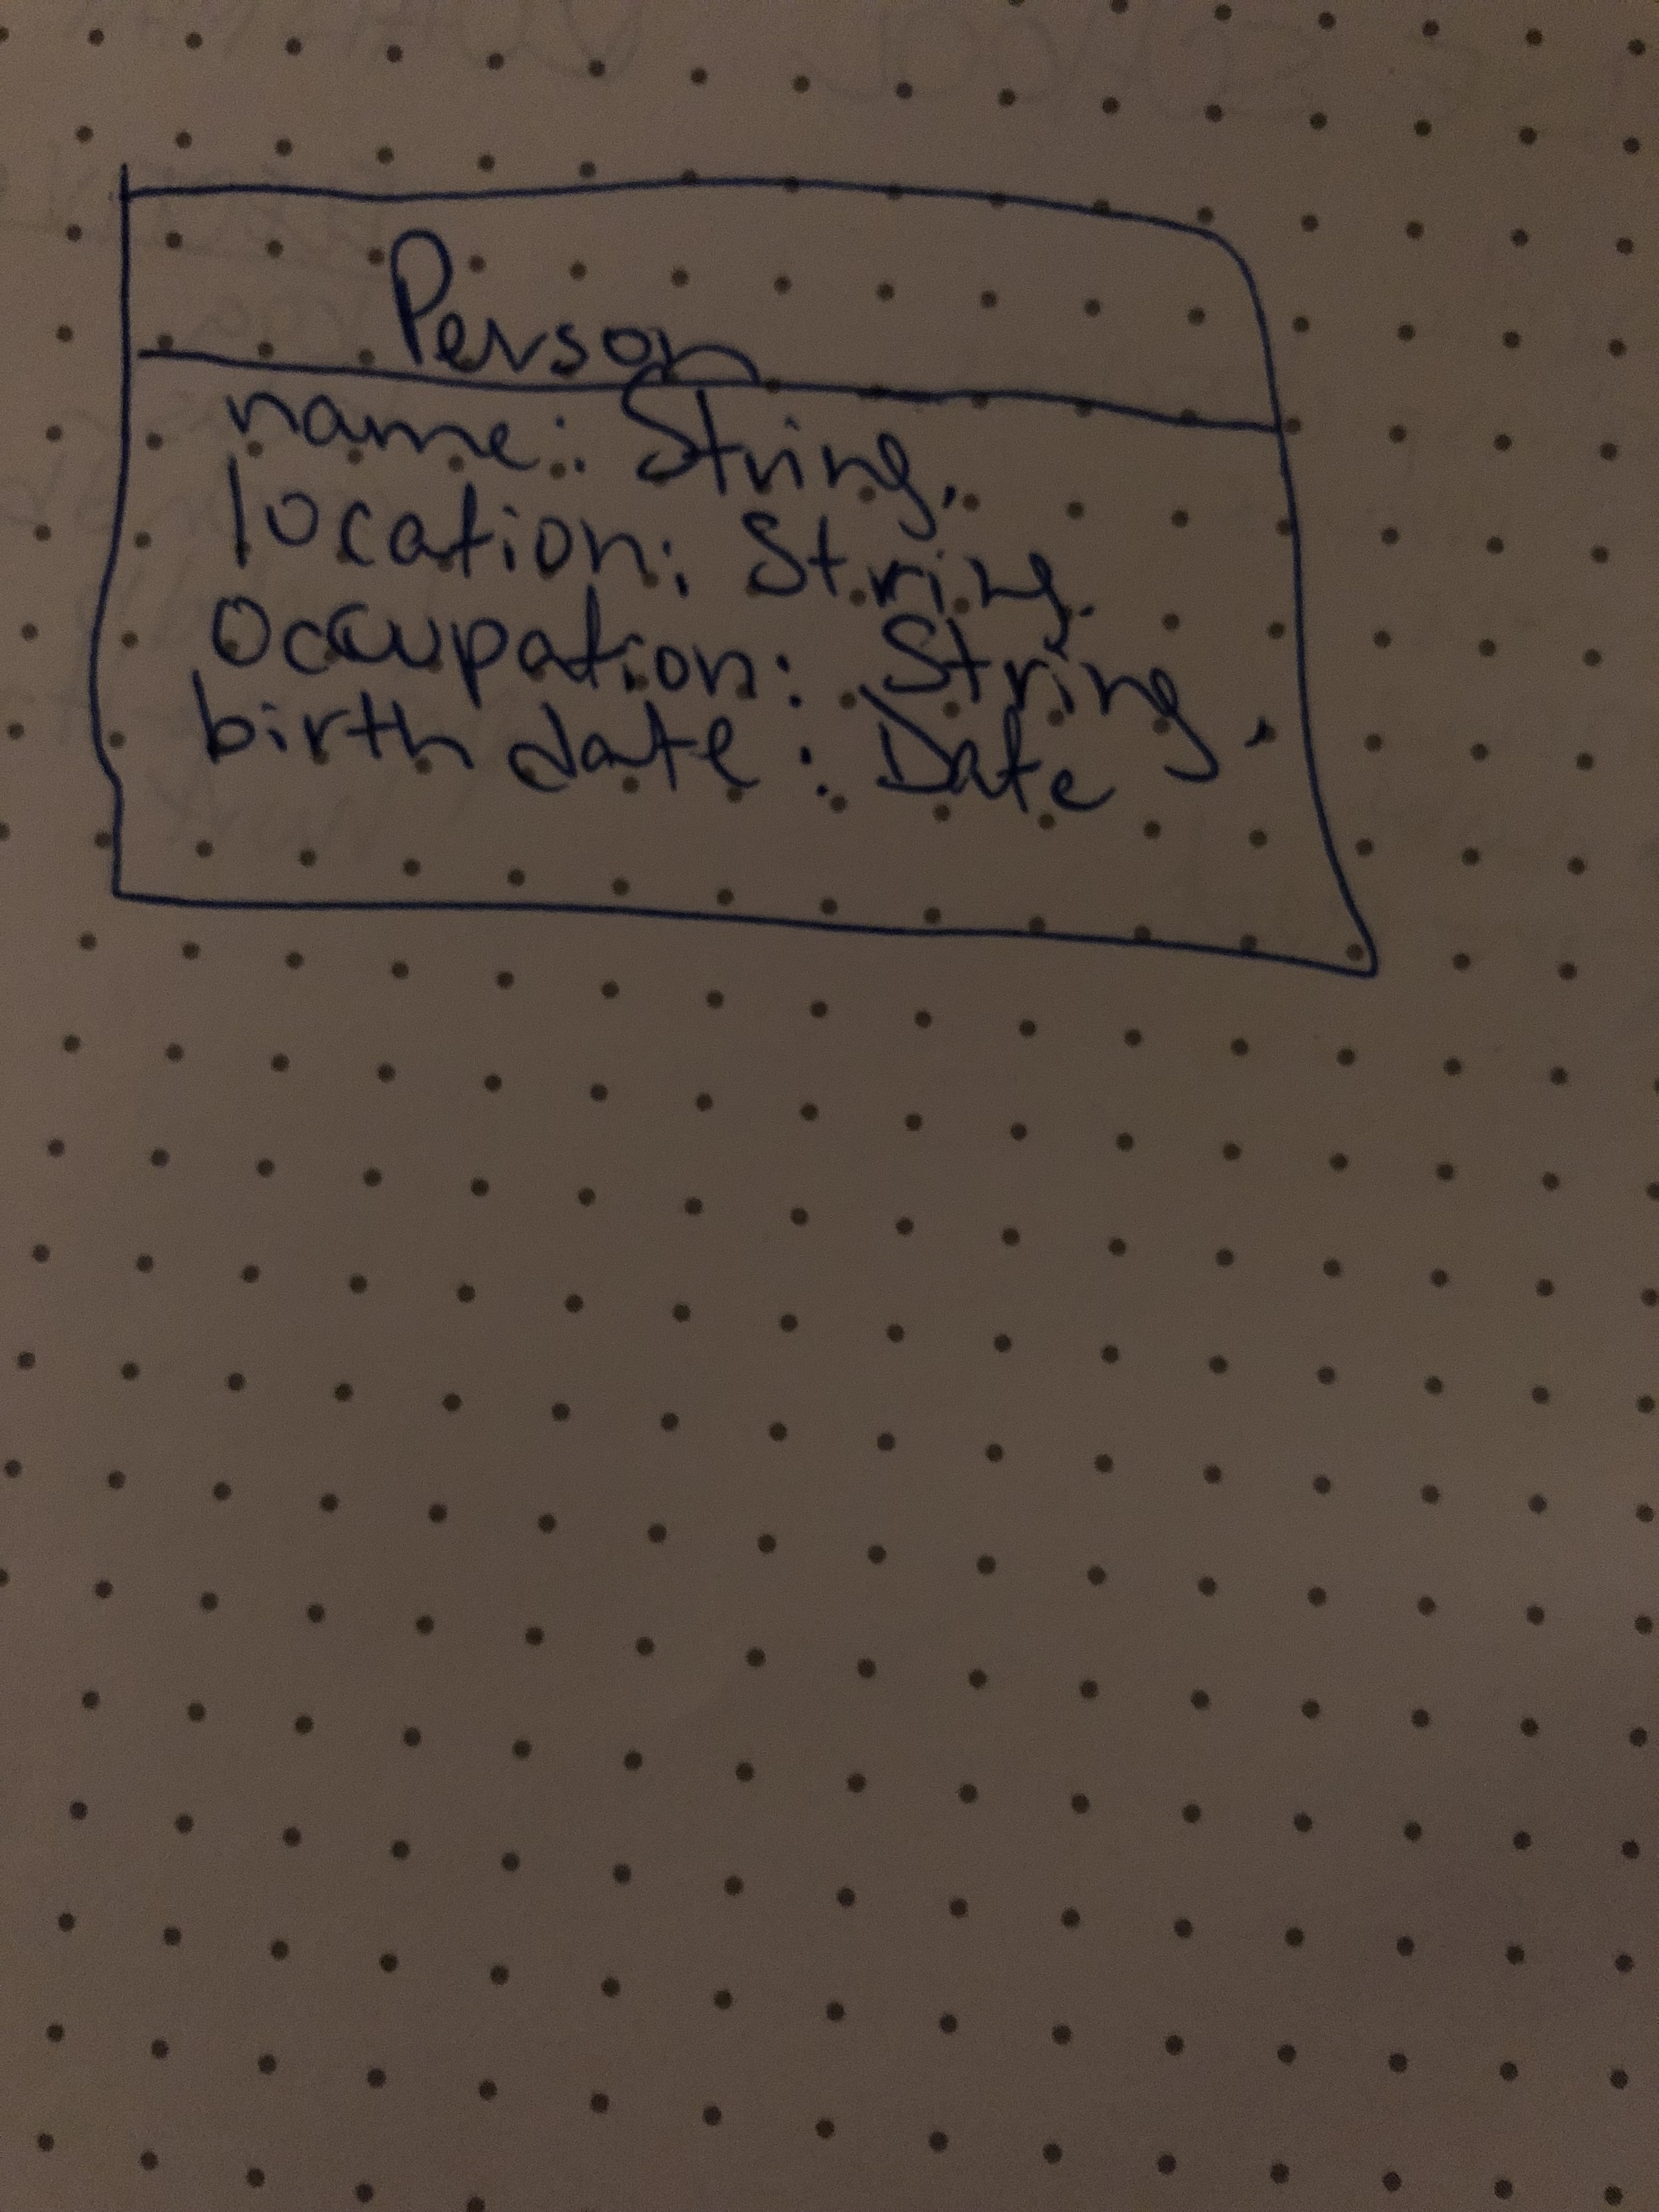 Person
name: String,
location: String,
Occupation: String,
birth date: Date